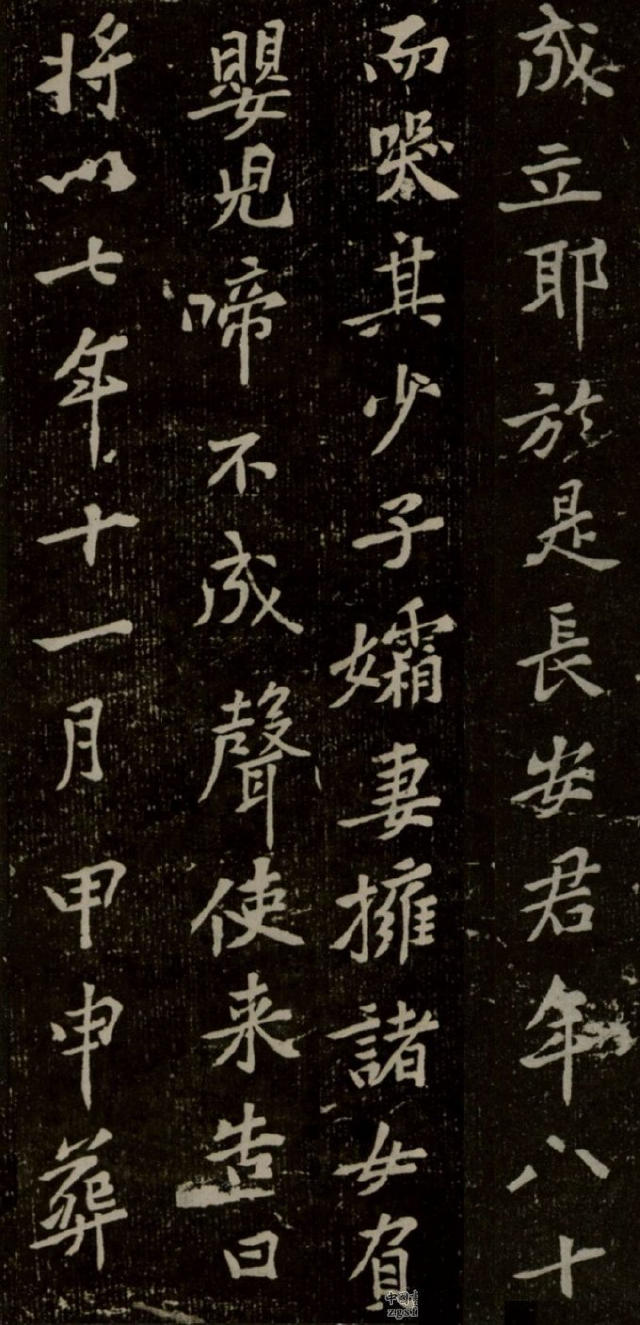 成立耶於是長安君年八十
而哭其少子孀妻擁諸女負
嬰兒啼不成聲使来告曰
将以七年十一月甲申葬